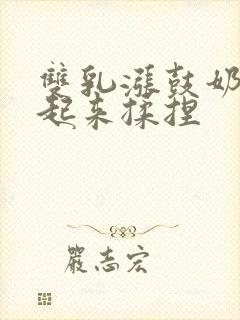 雙乳漲鼓奶
起来揉捏
嚴志宏